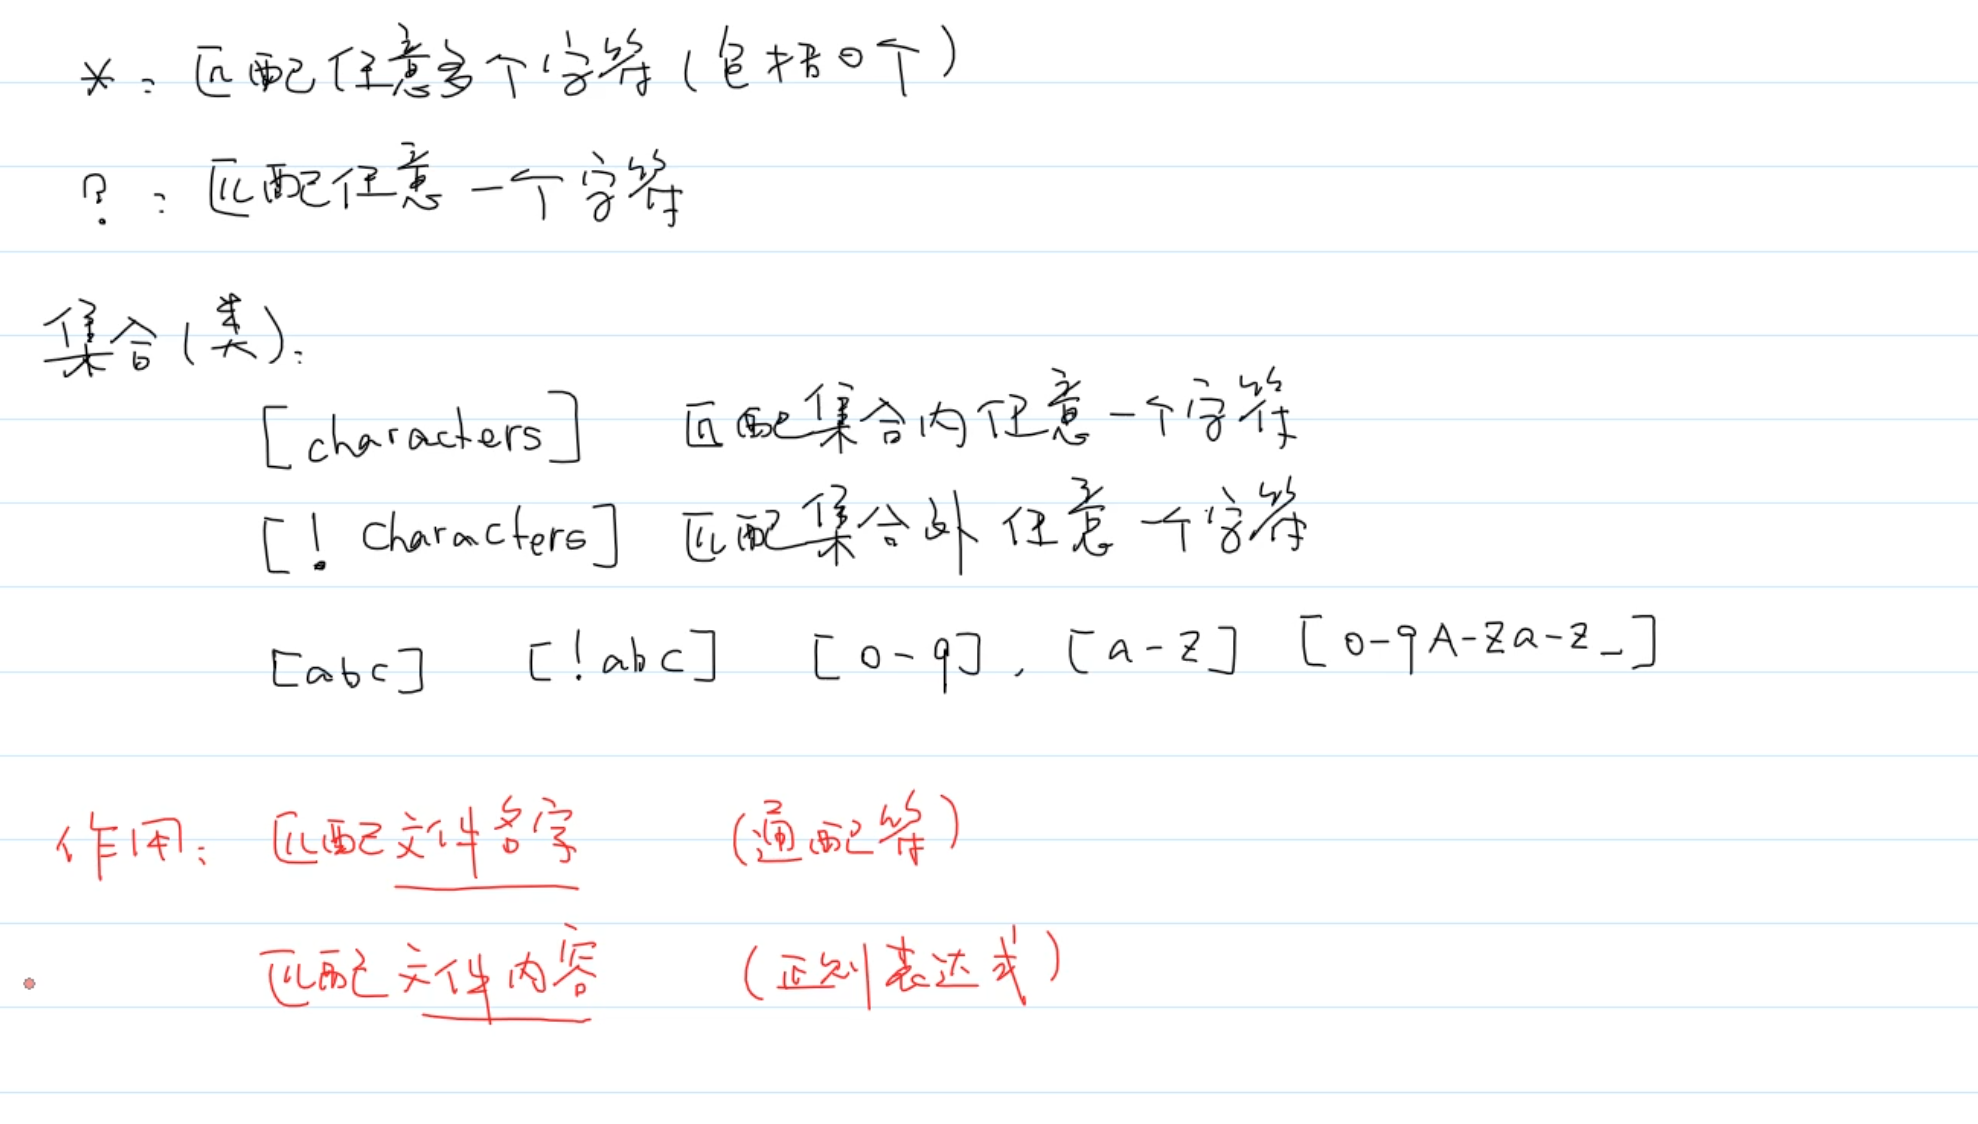 *：匹配任意多个字符（包括0个）
?：匹配任意一个字符
集合（类）：
[characters] 匹配集合内任意一个字符
[! characters] 匹配集合外任意一个字符
[abc] [!abc] [0-9], [a-z] [0-9A-Za-z_]
作用：匹配文件名字 （通配符）
匹配文件内容 （正则表达式）